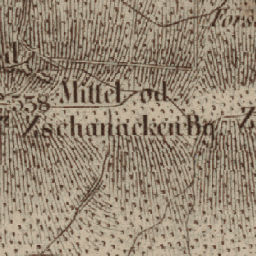 Fors
358 Mittel od
Zschanncken Bg
Z